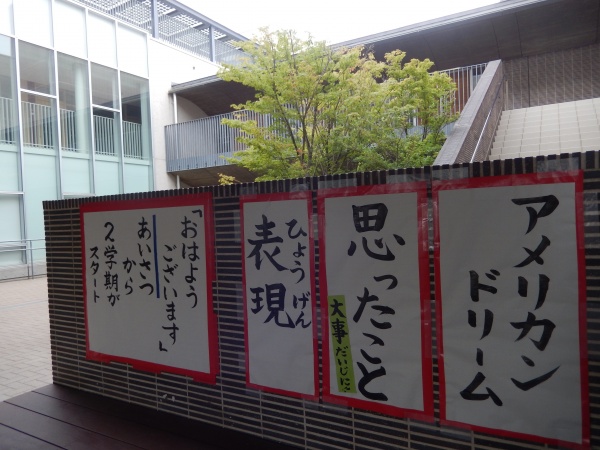 アメリカン
ドリーム
思ったこと
大事だいじに
ひょうげん
表現
「おはよう
ございます」
あいさつ
から
2学期が
スタート